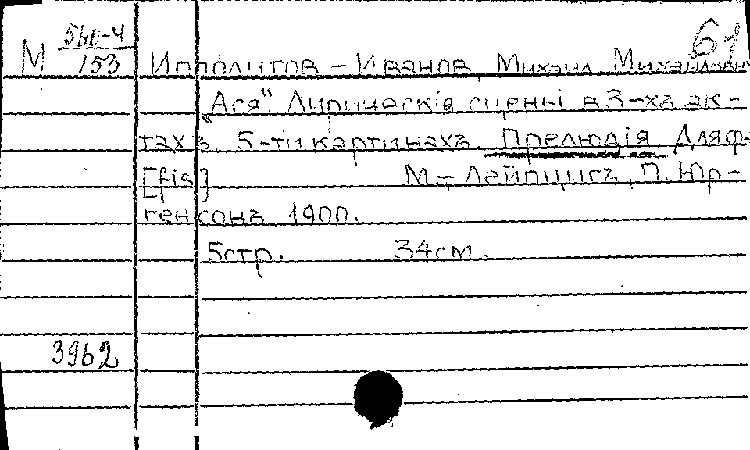 61
М 153 Ипполитов-Иванов, Михаил Михайлович
"Ася" Лирическiя сцены в 3-хъ ак-
тахъ 5-ти картинахъ. Прелюдiя Для ф-
[fis] М.-Лейпцигъ, П. Юр-
генсонъ 1900.
5стр. 34см.
3962